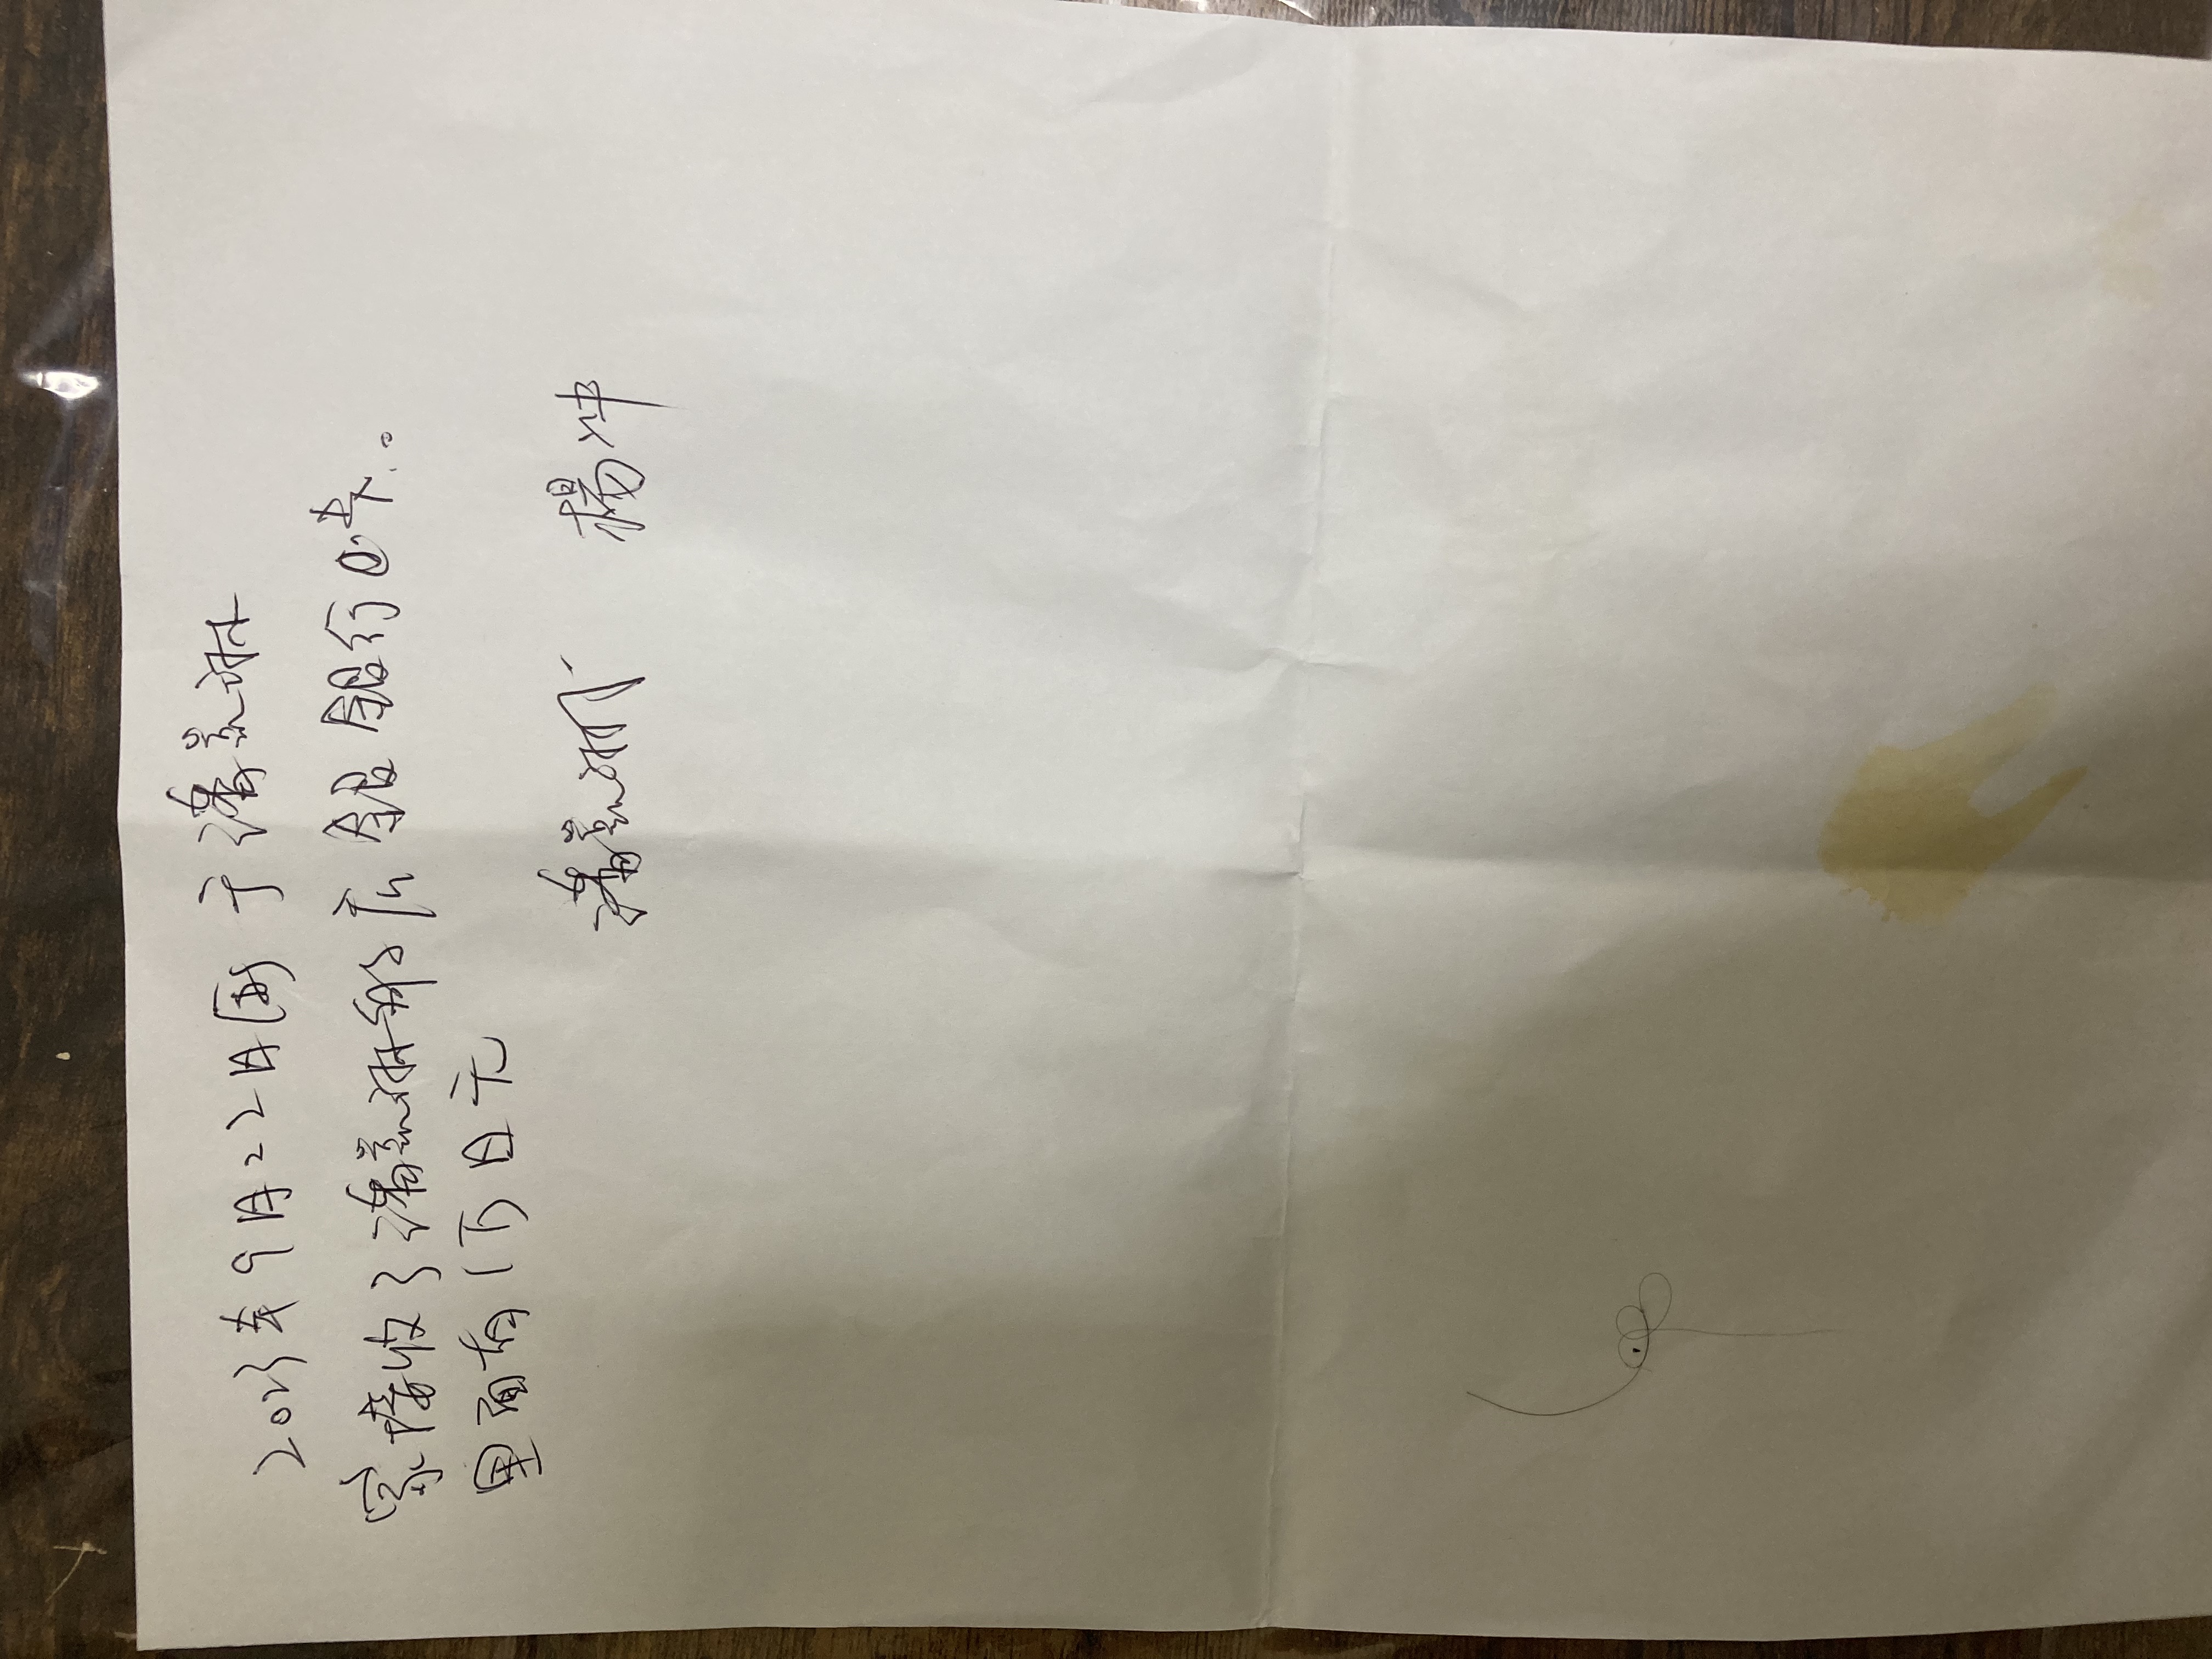 2023年9月22日(西)于潘慕琳
家接收了潘慕琳的 广 银 银行 卡。
里面有1万日元
潘慕琳 杨冲